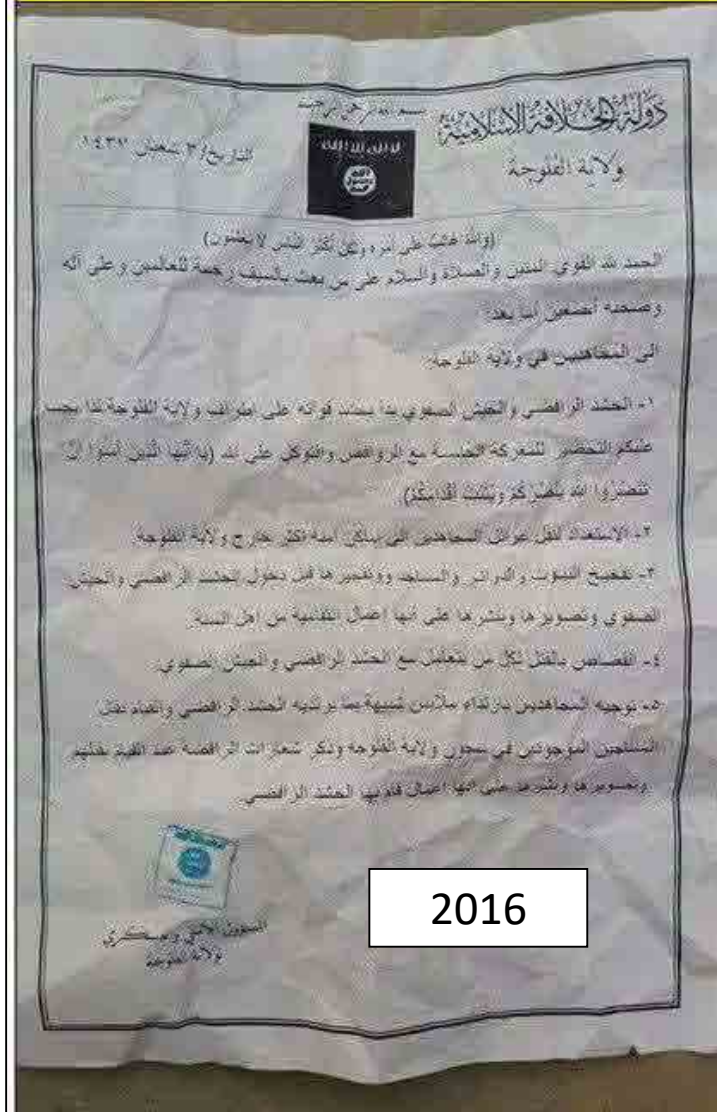 دولة الخلافة الإسلامية
ولاية الفلوجة
بسم الله الرحمن الرحيم
التاريخ/ ٣ شعبان ١٤٣٧
(والله غالب على أمره ولكن أكثر الناس لا يعلمون)
الحمد لله القوي المتين والصلاة والسلام على من بعث بالسيف رحمة للعالمين وعلى آله
وصحبه أجمعين أما بعد:
الى المجاهدين في ولاية الفلوجة:
١- الحشد الرافضي والجيش الصفوي بدا يحشد قواته على اطراف ولاية الفلوجة لذا يجب
عليكم التحضير للمعركة الحاسمة مع الروافض والتوكل على الله (يا أيها الذين آمنوا إن
تنصروا الله ينصركم ويثبت أقدامكم).
٢- الاستعداد لنقل عوائل المجاهدين الى اماكن امنة اكثر خارج ولاية الفلوجة.
٣- تفخيخ البيوت والدوائر والمساجد وتفجيرها قبل دخول الحشد الرافضي والجيش
الصفوي وتصويرها ونشرها على أنها اعمال انتقامية من اهل السنة.
٤- القصاص بالقتل لكل من يتعامل مع الحشد الرافضي والجيش الصفوي.
٥- توجيه المجاهدين بارتداء ملابس شبيهة بما يرتديه الحشد الرافضي والقيام بقتل
المساجين الموجودين في سجون ولاية الفلوجة وذكر شعارات الرافضة عند القيام بقتلهم
وتصويرها ونشرها على انها اعمال قام بها الحشد الرافضي.
المسؤول الأمني والعسكري
ولاية الفلوجة
2016